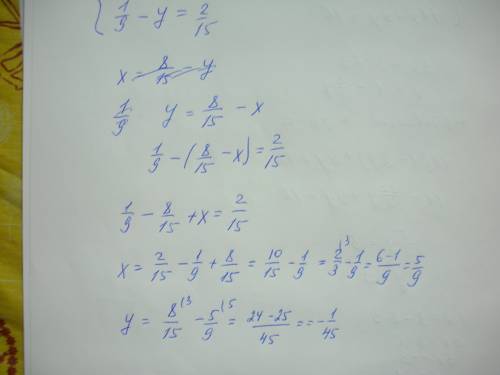 { 1/9 - y = 2/15
x = 8/15 - y
1/9 y = 8/15 - x
1/9 - (8/15 - x) = 2/15
1/9 - 8/15 + x = 2/15
x = 2/15 - 1/9 + 8/15 = 10/15 - 1/9 = 2/3 ⁽³ - 1/9 = 6-1/9 = 5/9
y = 8/15 ⁽³ - 5/9 ⁽⁵ = 24-25/45 = = - 1/45